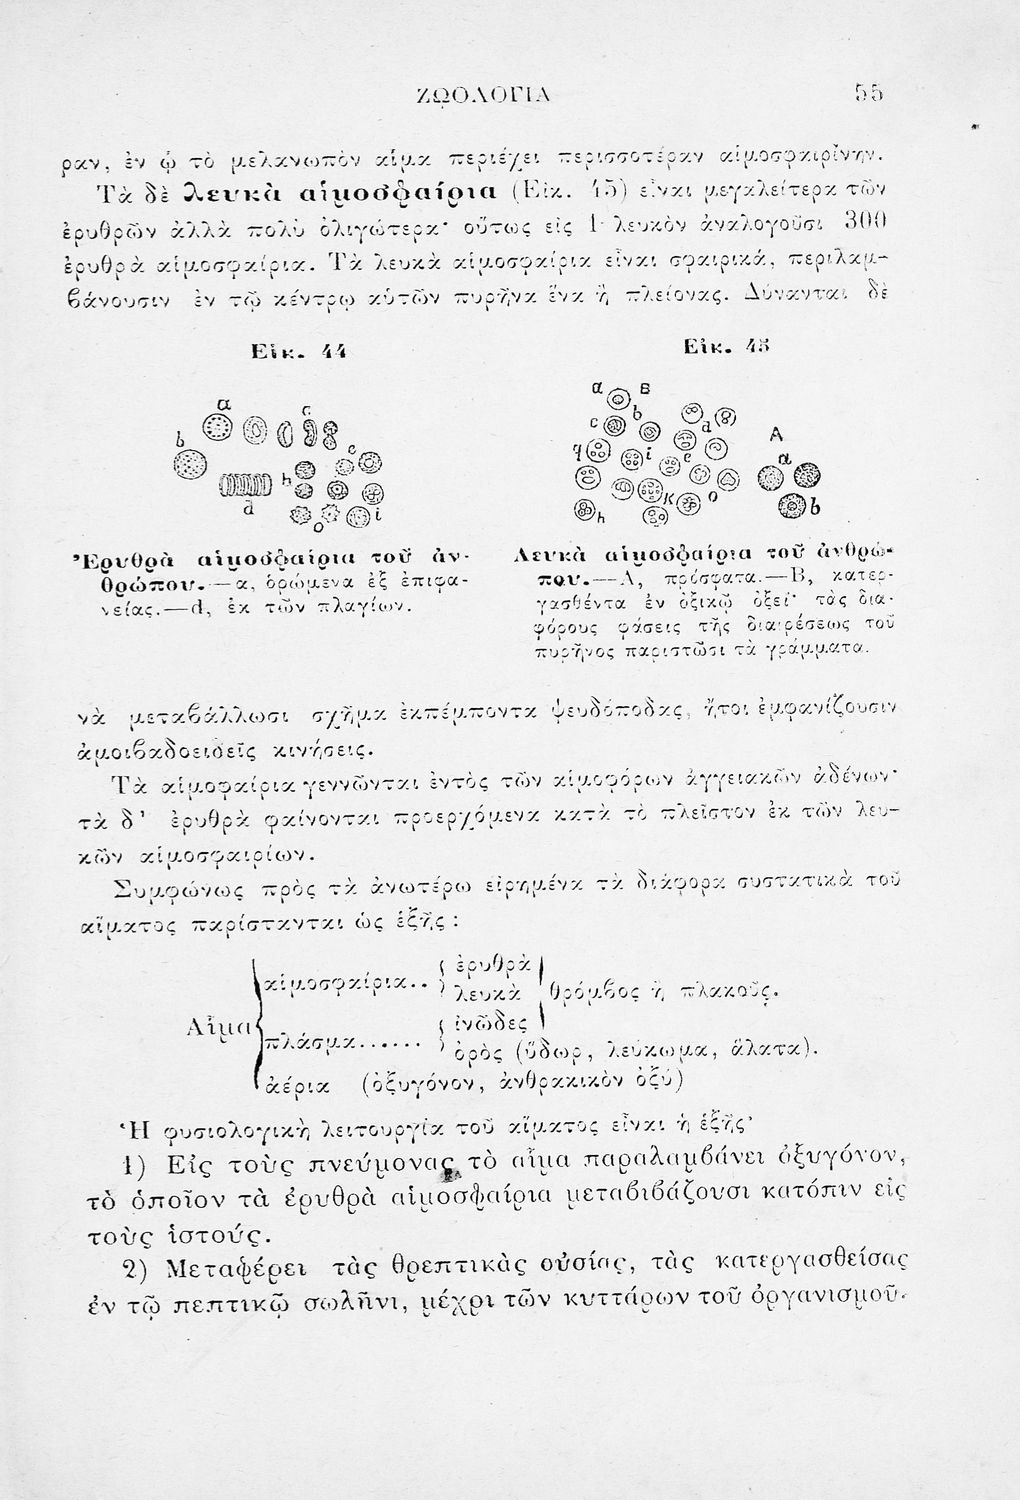 ΖΩΟΛΟΓΙΑ 55
ραν, ἐν ᾧ τὸ μελανωπὸν αἷμα περιέχει περισσοτέραν αἱμοσφαιρίνην.
Τὰ δὲ λευκὰ αἱμοσφαίρια (Εἰκ. 45) εἶναι μεγαλείτερα τῶν
ἐρυθρῶν ἀλλὰ πολὺ ὀλιγώτερα· οὕτως εἰς 1 λευκὸν ἀναλογοῦσι 300
ἐρυθρὰ αἱμοσφαίρια. Τὰ λευκὰ αἱμοσφαίρια εἶναι σφαιρικά, περιλαμ-
βάνουσιν ἐν τῷ κέντρῳ αὑτῶν πυρῆνα ἕνα ἢ πλείονας. Δύνανται δὲ
Εἰκ. 44
a
c
b
e
h
d
o
i
Ἐρυθρὰ αἱμοσφαίρια τοῦ ἀν-
θρώπου.—α, ὁρώμενα ἐξ ἐπιφα-
νείας.—d, ἐκ τῶν πλαγίων.
Εἰκ. 45
a B
b
c
d
A
q
i
e
a
K
o
h
b
Λευκὰ αἱμοσφαίρια τοῦ ἀνθρώ-
που.—Α, πρόσφατα.—Β, κατερ-
γασθέντα ἐν ὀξικῷ ὀξεῖ· τὰς δια-
φόρους φάσεις τῆς διαιρέσεως τοῦ
πυρῆνος παριστῶσι τὰ γράμματα.
νὰ μεταβάλλωσι σχῆμα ἐκπέμποντα ψευδόποδας, ἤτοι ἐμφανίζουσιν
ἀμοιβαδοειδεῖς κινήσεις.
Τὰ αἱμοφαίρια γεννῶνται ἐντὸς τῶν αἱμοφόρων ἀγγειακῶν ἀδένων·
τὰ δ' ἐρυθρὰ φαίνονται προερχόμενα κατὰ τὸ πλεῖστον ἐκ τῶν λευ-
κῶν αἱμοσφαιρίων.
Συμφώνως πρὸς τὰ ἀνωτέρω εἰρημένα τὰ διάφορα συστατικὰ τοῦ
αἵματος παρίστανται ὡς ἑξῆς :
Αἷμα
αἱμοσφαίρια..
ἐρυθρὰ
λευκὰ
θρόμβος ἢ πλακοῦς.
πλάσμα......
ἰνῶδες
ὀρὸς (ὕδωρ, λεύκωμα, ἅλατα).
ἀέρια (ὀξυγόνον, ἀνθρακικὸν ὀξύ)
Ἡ φυσιολογικὴ λειτουργία τοῦ αἵματος εἶναι ἡ ἑξῆς·
1) Εἰς τοὺς πνεύμονας τὸ αἷμα παραλαμβάνει ὀξυγόνον,
τὸ ὁποῖον τὰ ἐρυθρὰ αἱμοσφαίρια μεταβιβάζουσι κατόπιν εἰς
τοὺς ἱστούς.
2) Μεταφέρει τὰς θρεπτικὰς οὐσίας, τὰς κατεργασθείσας
ἐν τῷ πεπτικῷ σωλῆνι, μέχρι τῶν κυττάρων τοῦ ὀργανισμοῦ·